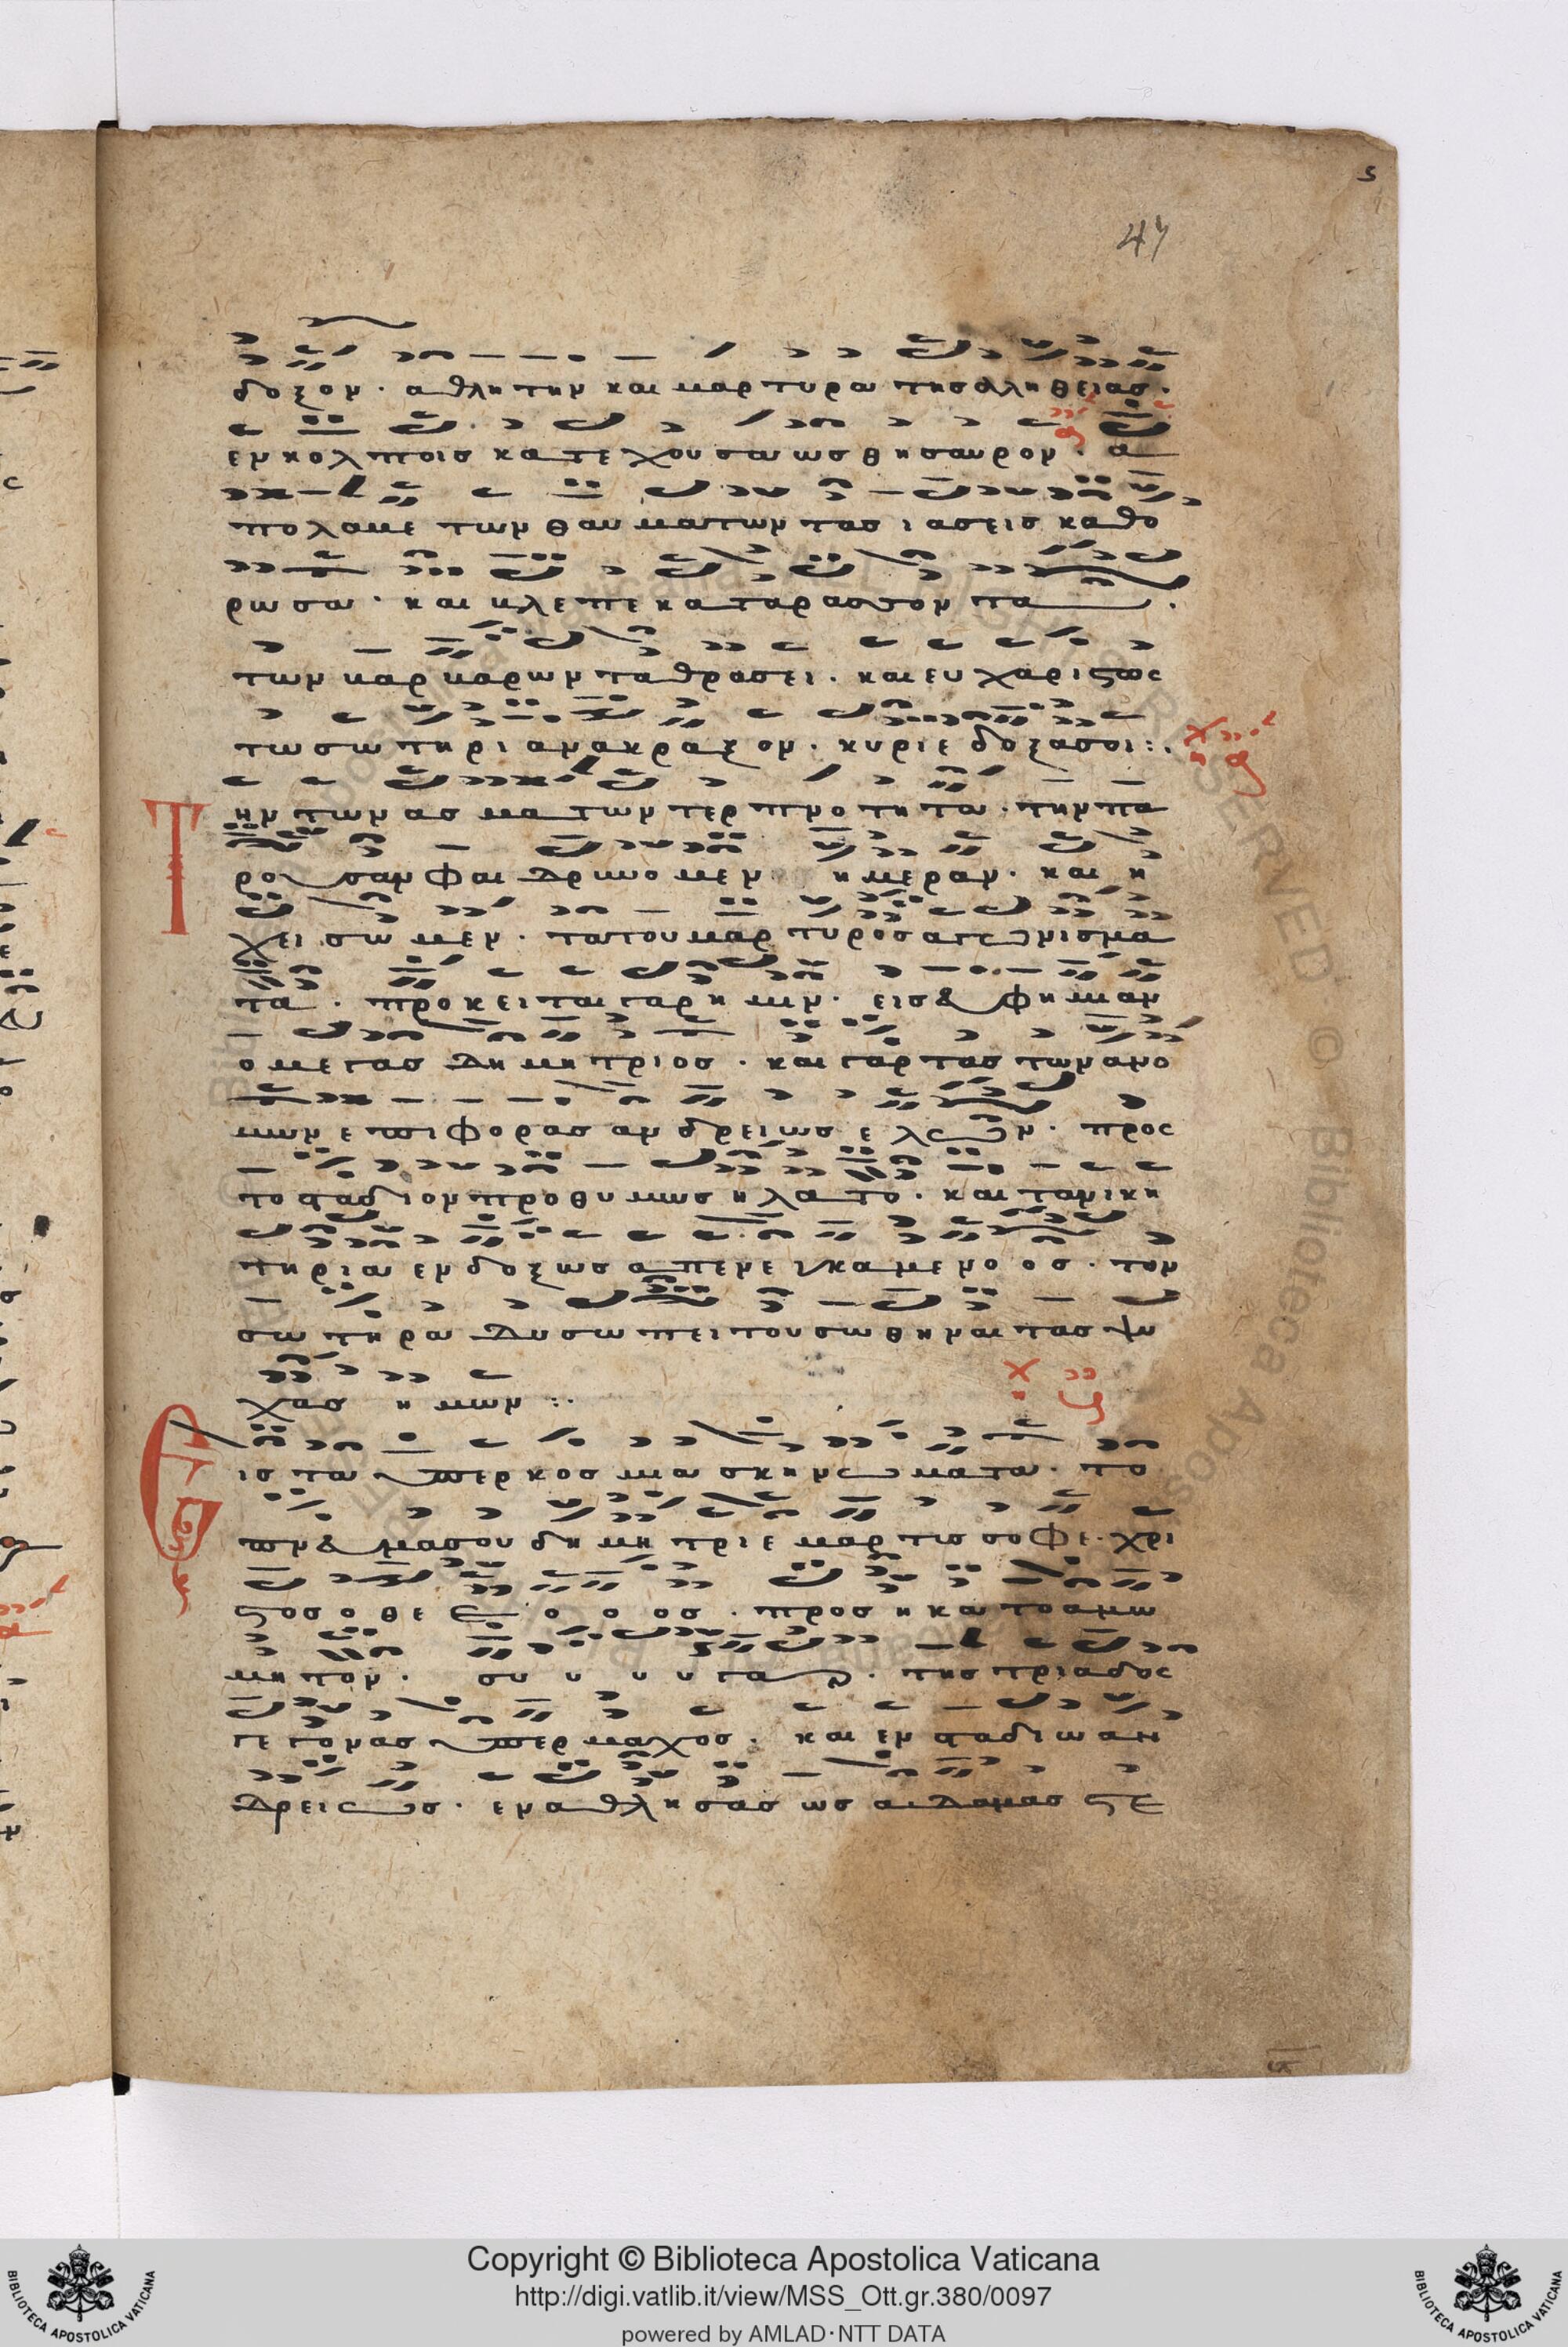 47
δοξον · αθλητην και μαρτυρα της αληθειας ·
εν κολποις κατεχουσα ως θησαυρον · α
πολαμε των θαυματων τας ιασεις καθο
ρωσα · και
των βαρβαρων τα θραση · και ευχαριστως
τω σωτηρι ανακραξον · κυριε δοξα σοι :·
Την των ασματων τερπνοτητα · την πα
ρουσαν φαιδρυνομεν ημεραν · και η
χεισωμεν · τα του μαρτυρος αγωνισμα
τα · προκειται γαρ ημιν · εις ευφημιαν
ο μεγας Δημητριος · και γαρ τας των ανο
μων επιφορας ανδρειως ελων · προς
το σταδιον προθυμως ηλατο · και τα νικη
τηρια ενδοξως απενεγκαμενοος · τον
σωτηρα δυσωπει του σωθηναι τας ψυ
χας ημων :·
Εις τα υπερκοσμια σκηνωματα · το
πνευμα σου δημητριε μαρτυς σοφε · χρι
στος ο θεεοοος · προσηκατο αμω
μητον · συ υ υ υ γαρ · της τριαδος
γεγονας υπερμαχος · και εν σταδιω αν
δρειως · εναθλησας ως αδαμας στε
Copyright © Biblioteca Apostolica Vaticana
http://digi.vatlib.it/view/MSS_Ott.gr.380/0097
powered by AMLAD·NTT DATA
BIBLIOTECA APOSTOLICA VATICANA
BIBLIOTECA APOSTOLICA VATICANA